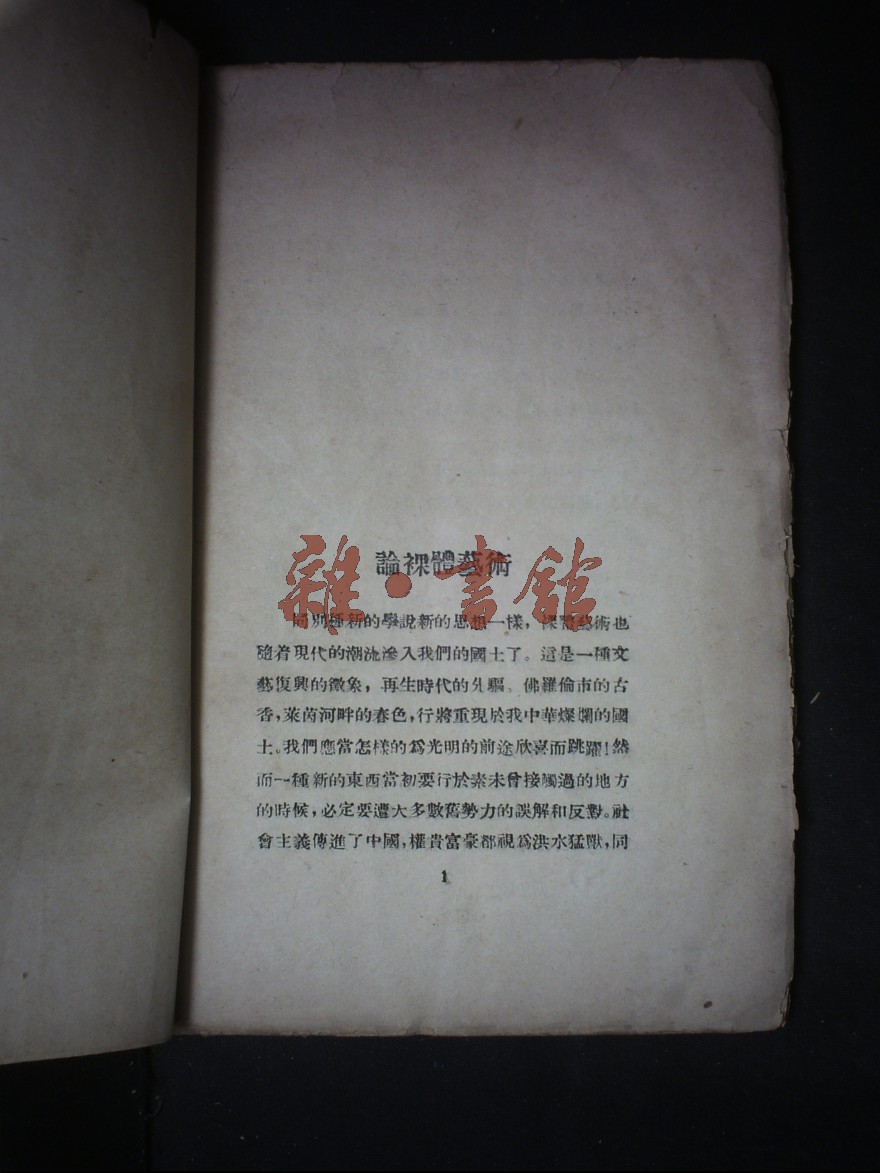 論裸體藝術
雜·書館
同別種新的學說新的思想一樣，裸體藝術也
隨着現代的潮流滲入我們的國土了。這是一種文
藝復興的徵象，再生時代的先驅。佛羅倫市的古
香，萊茵河畔的春色，行將重現於我中華燦爛的國
土。我們應當怎樣的爲光明的前途欣喜而跳躍！然
而一種新的東西當初要行於素未曾接觸過的地方
的時候，必定要遭大多數舊勢力的誤解和反對。社
會主義傳進了中國，權貴富豪都視爲洪水猛獸，同
1